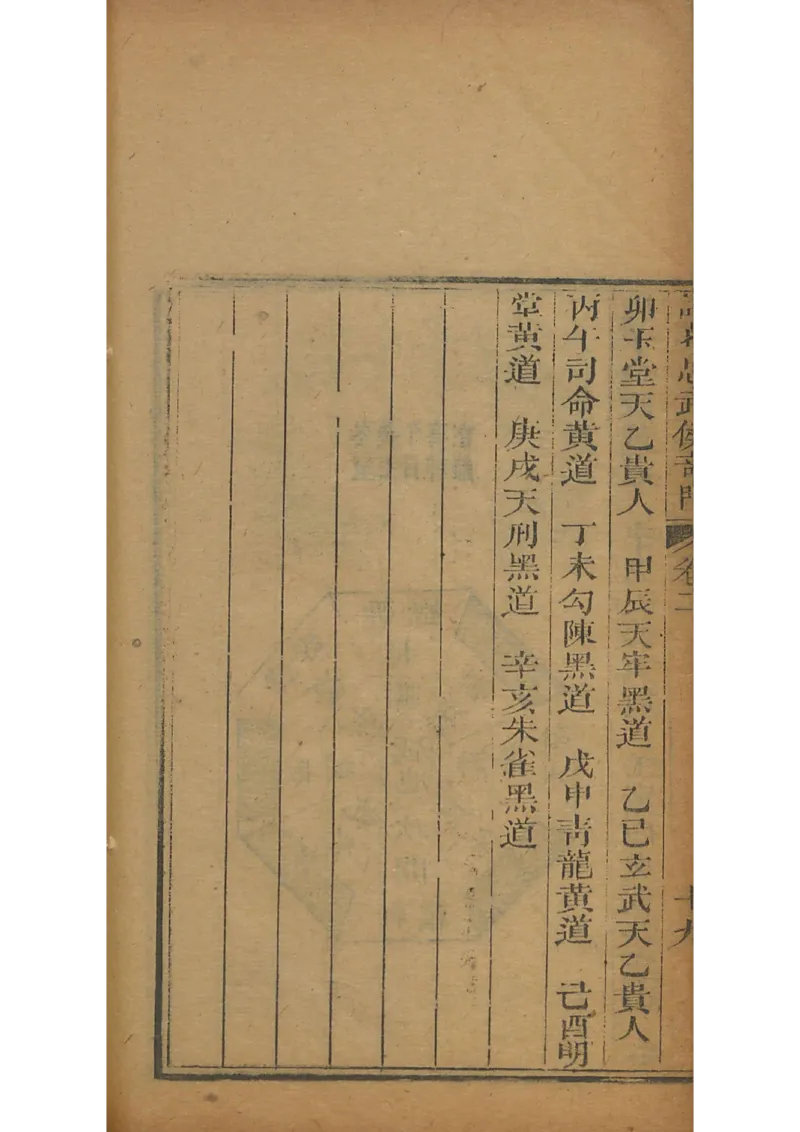 武侯奇門 卷二 十九
卯玉堂天乙貴人 甲辰天牢黑道 乙巳玄武天乙貴人
丙午司命黃道 丁未勾陳黑道 戊申青龍黃道 己酉明
堂黃道 庚戌天刑黑道 辛亥朱雀黑道